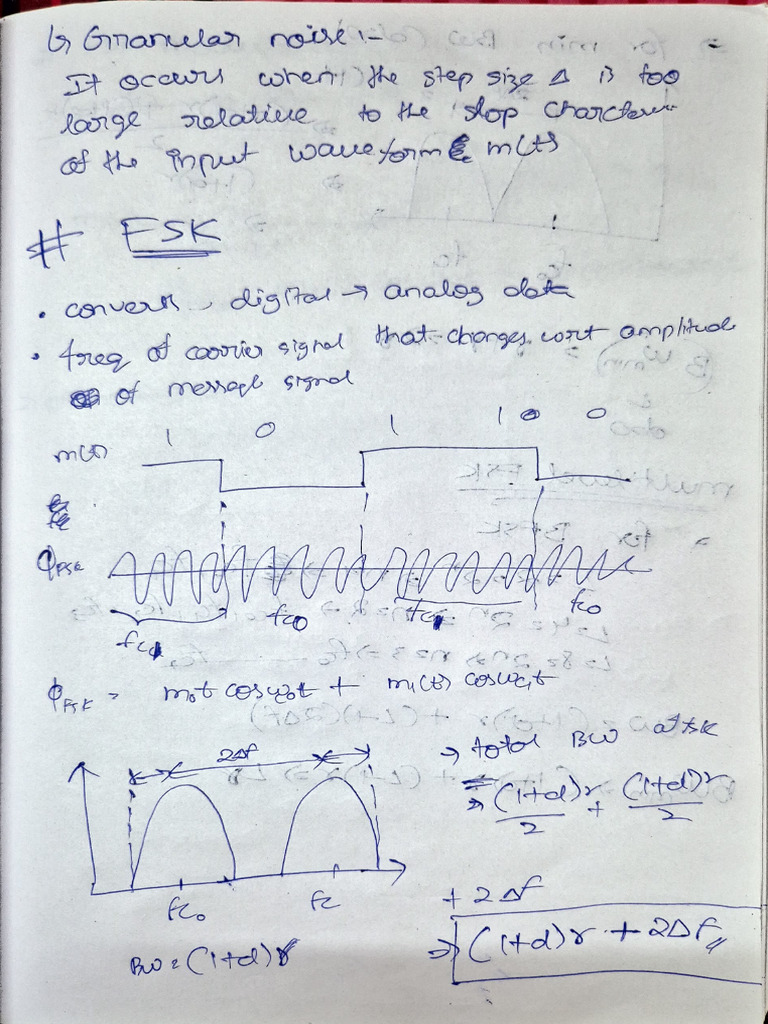 ↳ Granular noise :-
It occurs when the step size Δ is too
large relative to the slop charcter
of the input waveform m(t)
# FSK
• converts digital → analog data
• freq of carrier signal that changes wrt amplitude
of message signal
1 0 1 1 0 0
m(t)
ϕFSK
fc1 fc0 fc1 fc0
ϕFSK = m0t cosω0t + m1(t) cosωc1t
2Δf
→ total BW of FSK
⇒ (1+d)r/2 + (1+d)r/2
+ 2Δf
fc0 fc
BW = (1+d)r
⇒ (1+d)r + 2Δf